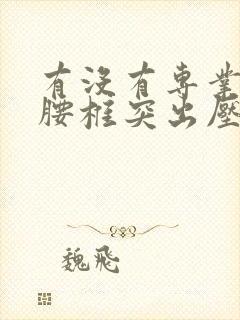 有没有專業
腰椎突出壓
魏飛